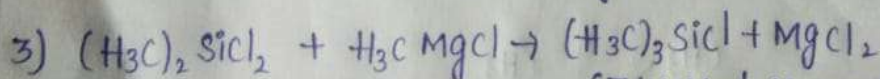 3) (H₃C)₂ SiCl₂ + H₃C MgCl → (H₃C)₃ SiCl + MgCl₂